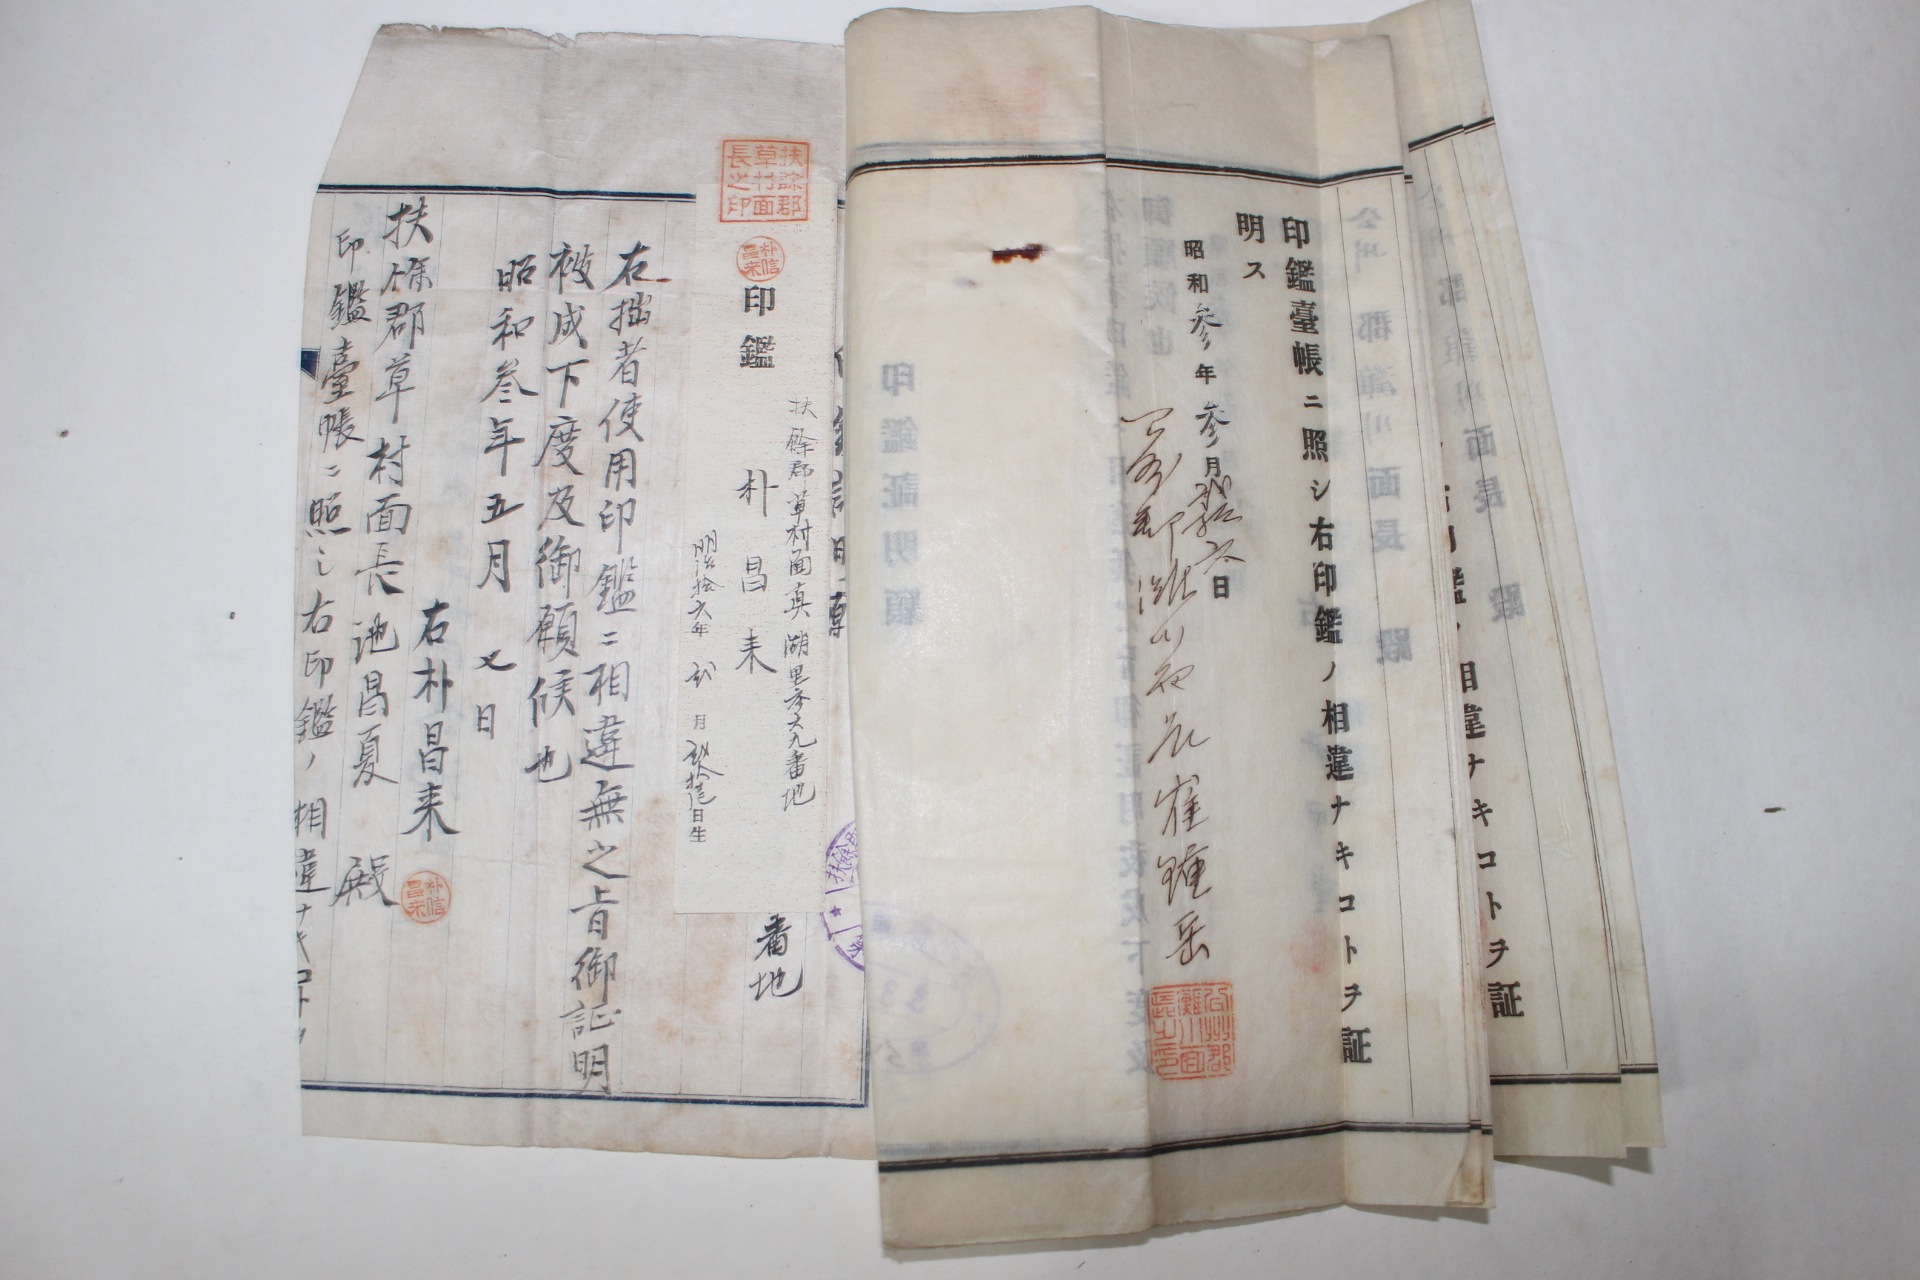 印鑑臺帳ニ照シ右印鑑ノ相違ナキコトヲ証
明ス
昭和参年参月
日
崔鍾岳
公州郡
灘川面
長之印
相違ナキコトヲ証
扶餘郡
草村面
長之印
朴信
昌來
印鑑
扶餘郡草村面真湖里参六九番地
朴昌来
明治拾六年 弐月 弐拾壱日生
番地
右拙者使用印鑑ニ相違無之旨御証明
被成下度及御願候也
昭和叁年五月七日
右朴昌来
朴信
昌來
扶餘郡草村面長池昌夏殿
印鑑臺帳ニ照シ右印鑑ノ相違ナキコトヲ
印鑑証明願
公州郡灘川面長殿